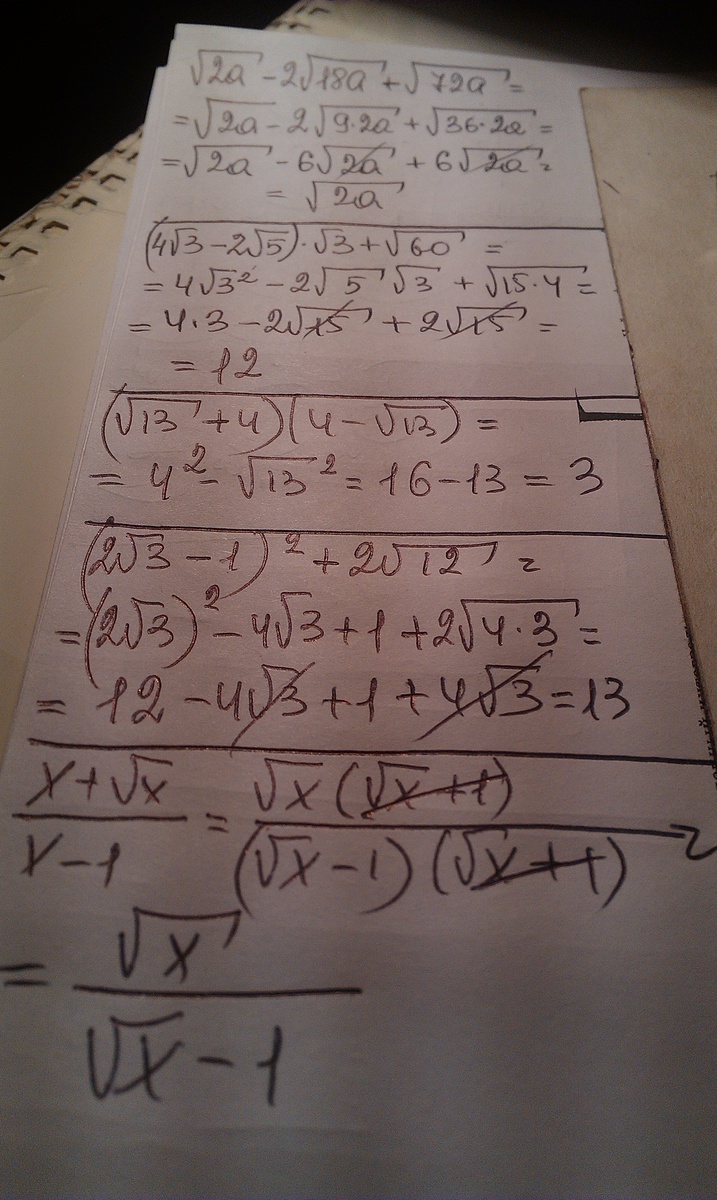 √2a - 2√18a + √72a =
= √2a - 2√9·2a + √36·2a =
= √2a - 6√2a + 6√2a =
= √2a
(4√3 - 2√5)·√3 + √60 =
= 4√3² - 2√5 √3 + √15·4 =
= 4·3 - 2√15 + 2√15 =
= 12
(√13 + 4)(4 - √13) =
= 4² - √13² = 16 - 13 = 3
(2√3 - 1)² + 2√12 =
= (2√3)² - 4√3 + 1 + 2√4·3 =
= 12 - 4√3 + 1 + 4√3 = 13
(x + √x)/(x - 1) = (√x(√x + 1))/((√x - 1)(√x + 1)) =
= √x/(√x - 1)